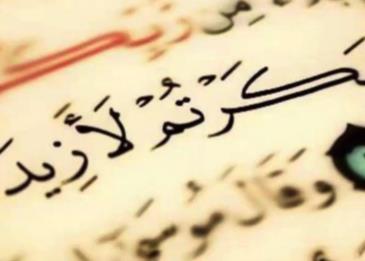 مِّن رَّبِّكُ
كَرْتُمْ لَأَزِيدَ
وَقَالَ مُوسَى